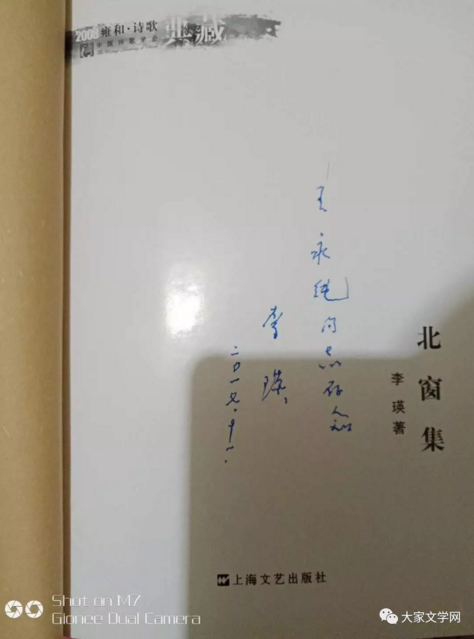 2008 雍和·诗歌
典藏
王永同志
李瑛
二〇一七.十一.
北窗集
李瑛著
上海文艺出版社
Shot on M7
Gionee Dual Camera
大家文学网